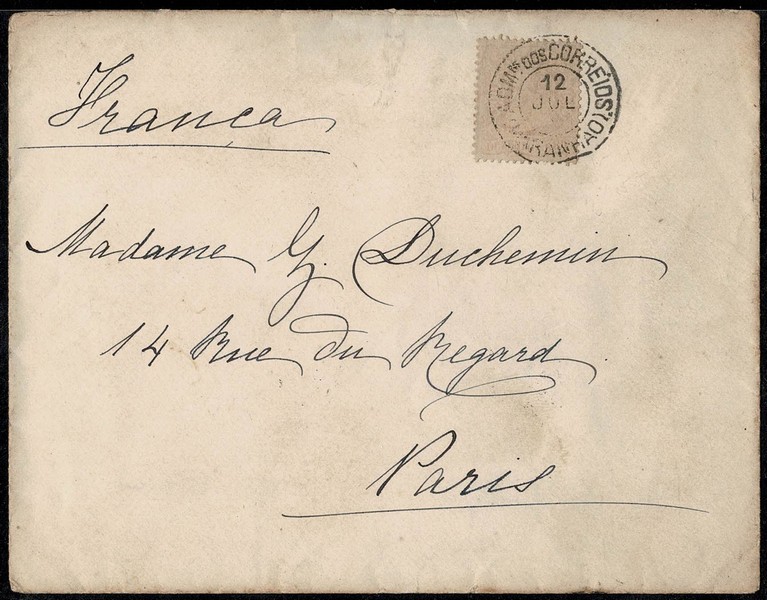 França
ADMᵒʳ DOS CORREIOS
12
JUL
(MARANHÃO)
Madame G. Duchemin
14 Rue du Regard
Paris